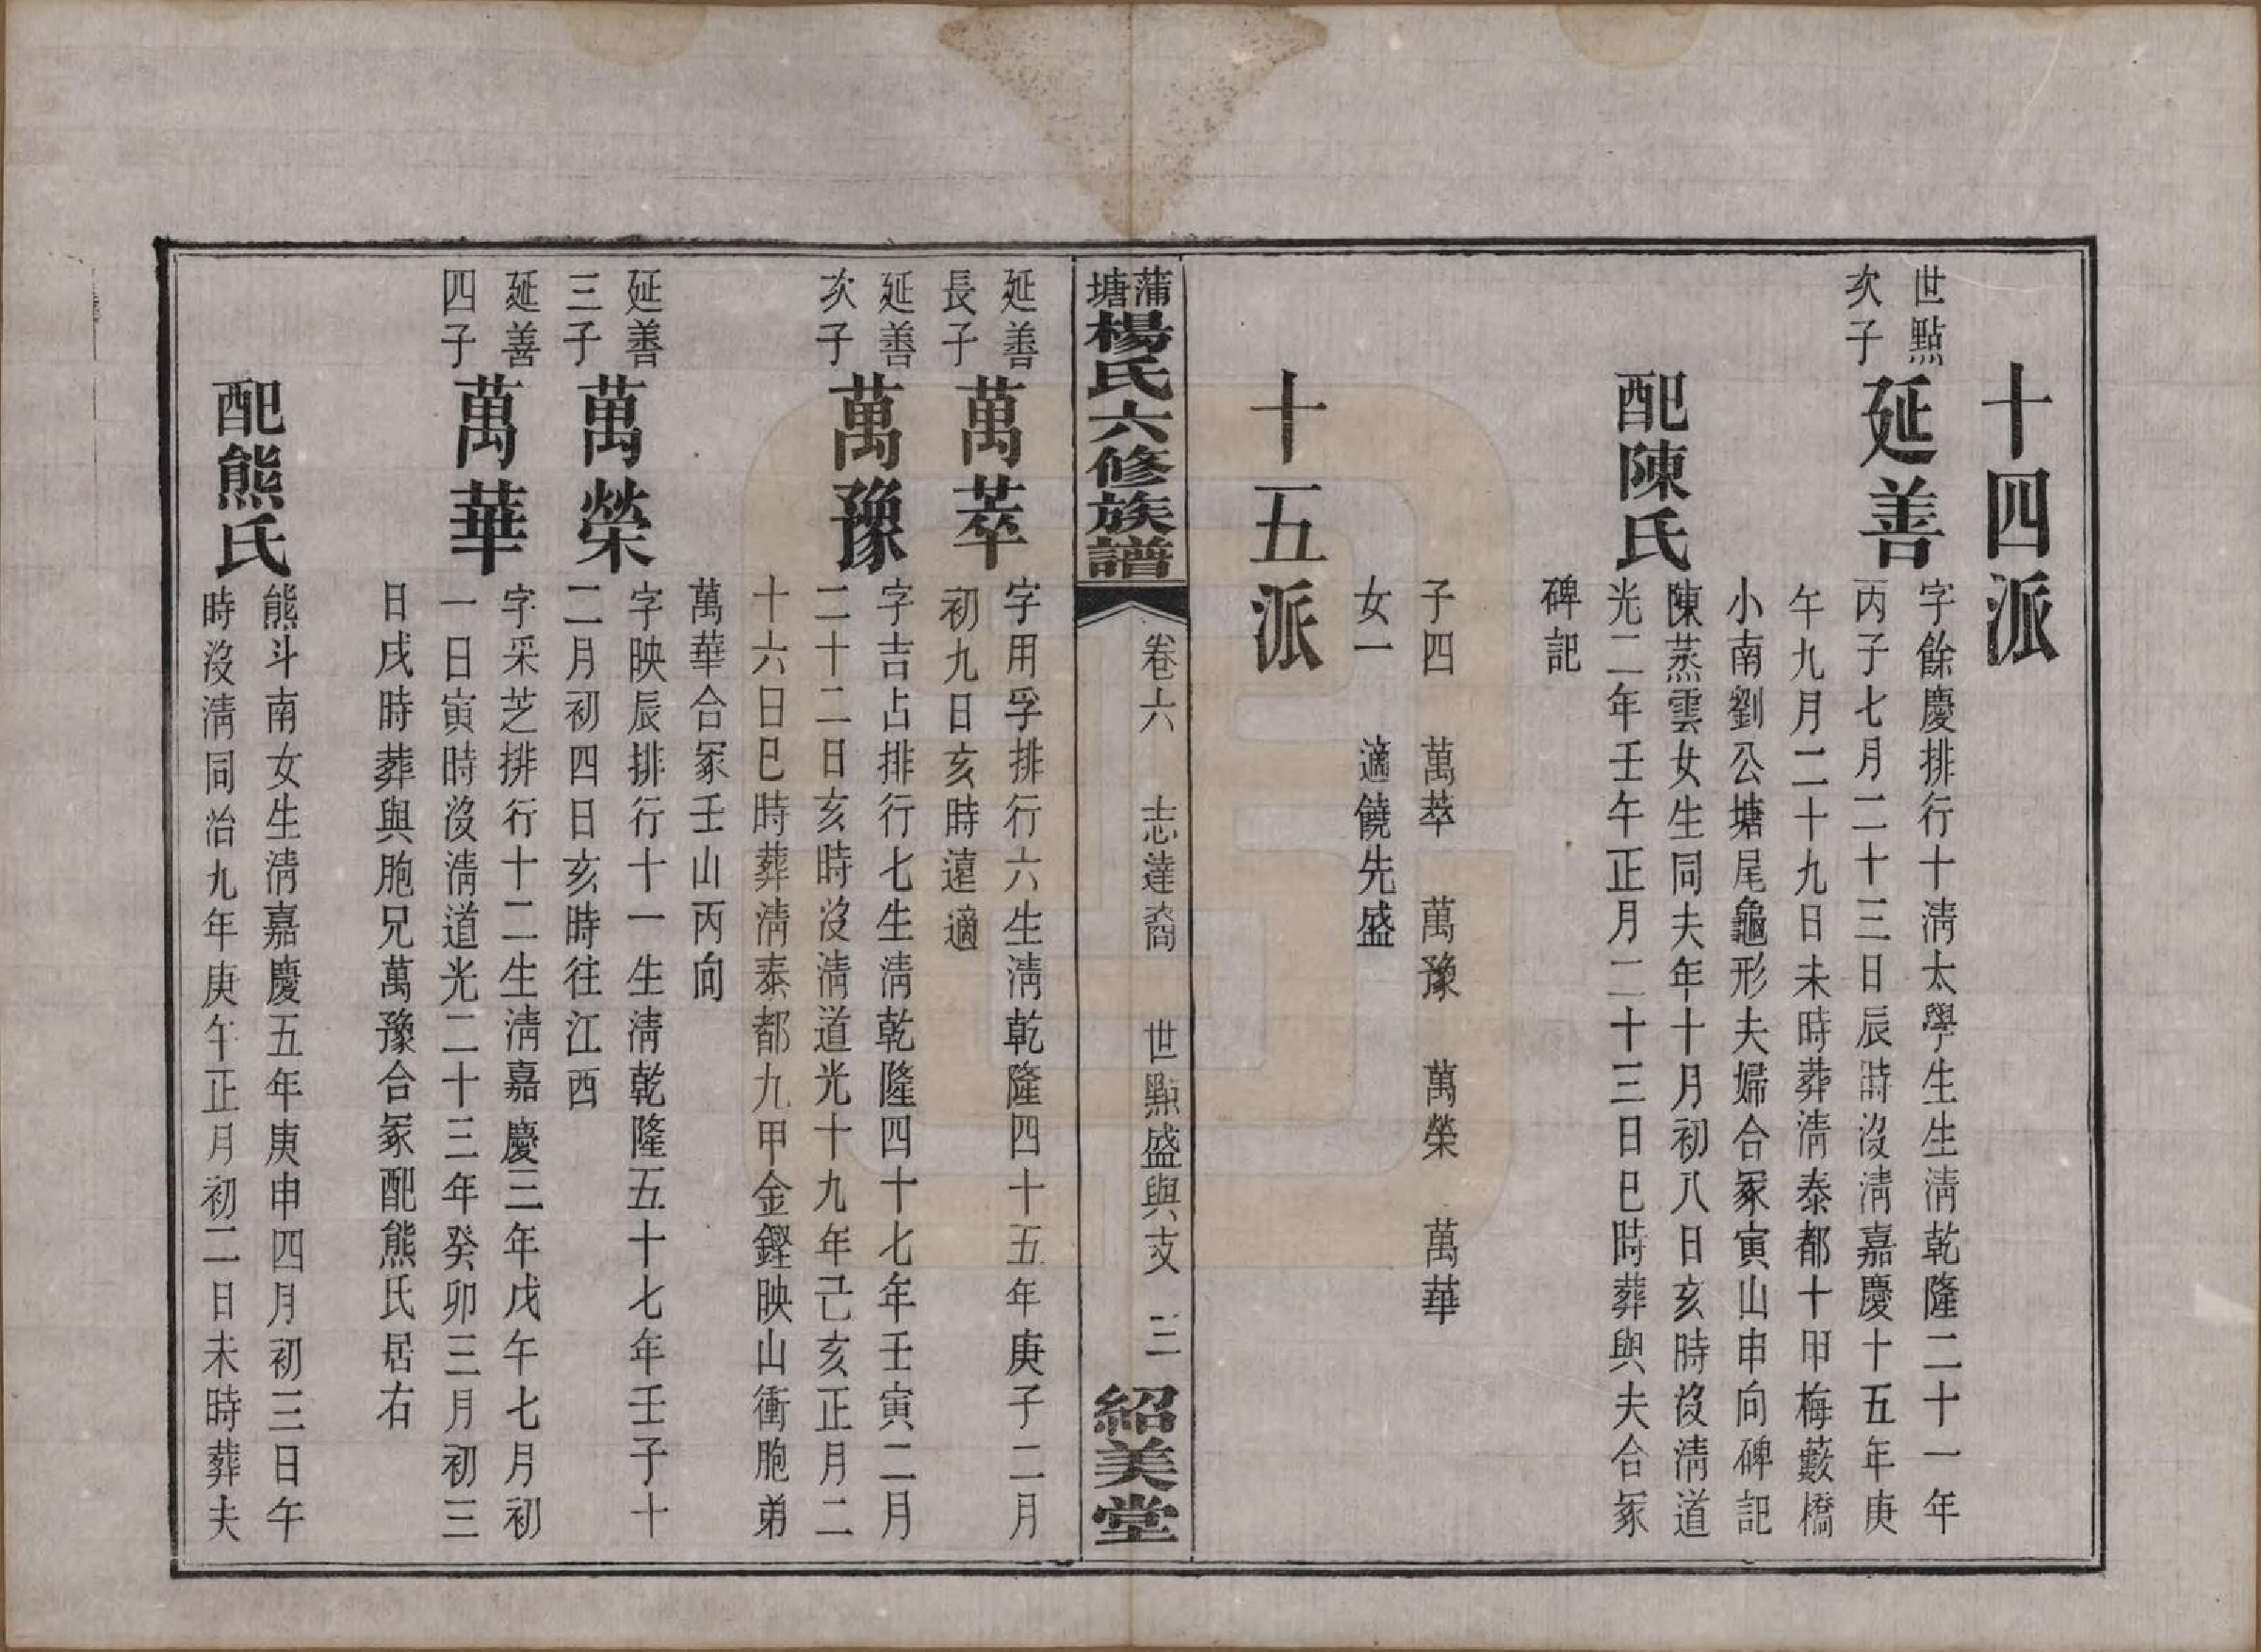 十四派
世點
次子
延善
字餘慶排行十淸太學生生淸乾隆二十一年
丙子七月二十三日辰時沒淸嘉慶十五年庚
午九月二十九日未時葬淸泰都十甲梅藪橋
小南劉公塘尾龜形夫婦合冢寅山申向碑記
配陳氏
陳蒸雲女生同夫年十月初八日亥時沒淸道
光二年壬午正月二十三日巳時葬與夫合冢
碑記
子四 萬萃 萬豫 萬榮 萬華
女一 適饒先盛
十五派
蒲塘楊氏六修族譜 卷六 志達裔 世點盛與支 三 紹美堂
延善
長子
萬萃
字用孚排行六生淸乾隆四十五年庚子二月
初九日亥時遠適
延善
次子
萬豫
字吉占排行七生淸乾隆四十七年壬寅二月
二十二日亥時沒淸道光十九年己亥正月二
十六日巳時葬淸泰都九甲金鏗映山衝胞弟
萬華合冢壬山丙向
延善
三子
萬榮
字映辰排行十一生淸乾隆五十七年壬子十
二月初四日亥時往江西
延善
四子
萬華
字采芝排行十二生淸嘉慶三年戊午七月初
一日寅時沒淸道光二十三年癸卯三月初三
日戌時葬與胞兄萬豫合冢配熊氏居右
配熊氏
熊斗南女生淸嘉慶五年庚申四月初三日午
時沒淸同治九年庚午正月初二日未時葬夫